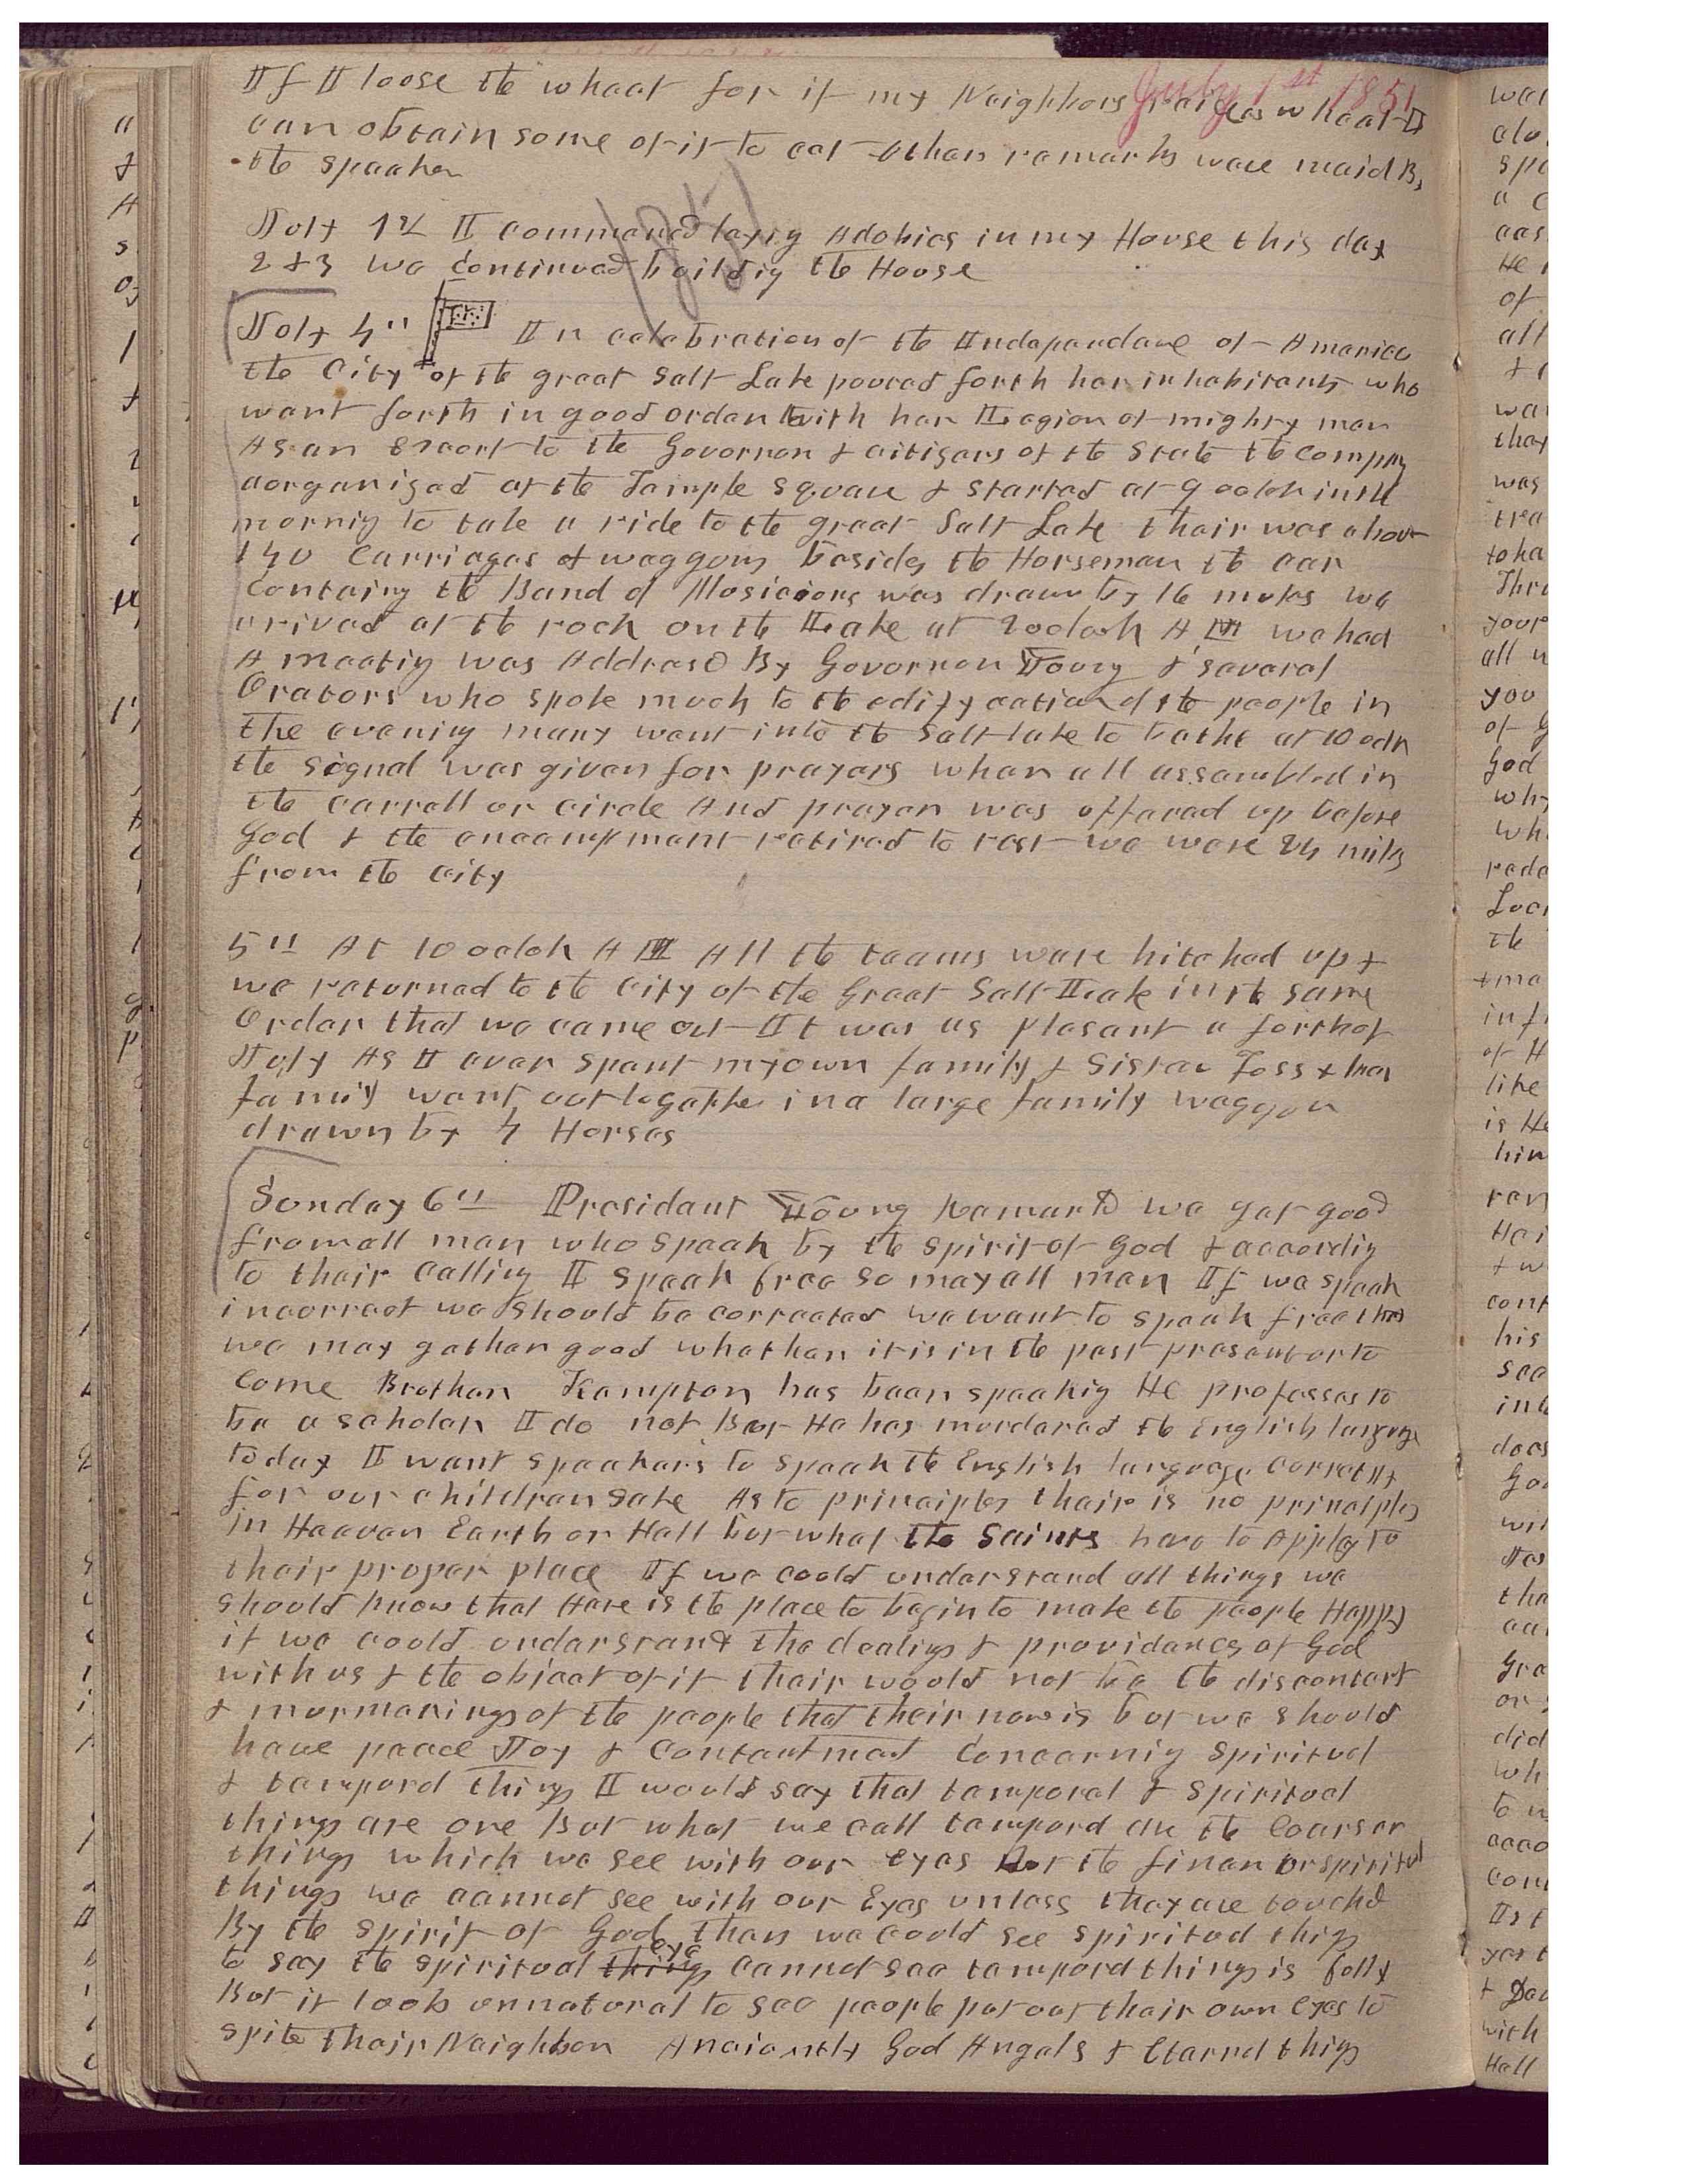 July 1st 1851
If I loose the wheat for if my Neighbors raises wheat I
can obtain some of it to eat other remarks were maid By
the speaker
1851
July 1st I commenced laying Adobies in my House this day
2 & 3 we continued building the House
July 4th In celebration of the Independance of America
the City of the great Salt Lake poured forth her inhabitants who
went forth in good order with her Legion of mighty men
As an Escort to the Governor & citizens of the State the company
corganized at the Temple square & started at 9 oclok in the
morning to take a ride to the great Salt Lake thair was about
140 Carriages & waggons besides the Horseman the car
containg the Band of Musicions was drawn by 16 mules we
arived at the rock on the Lake at 2 oclock A M we had
A meeting was Addresd By Governor Young & several
Orators who spoke much to the edifycation of the people in
the evening many went into the Salt lake to bathe at 10 oclk
the signal was given for prayers when all assembled in
the carrell or circle And prayer was offered up before
God & the encampment retired to rest we were 24 miles
from the city
5th At 10 oclok A M All the teams were hitched up &
we returned to the City of the Great Salt Lake in the same
Order that we came out It was as plesant a forth of
July As I ever spent my own family & Sister Foss & her
family went out togather in a large family waggon
drawn by 4 Horses
Sunday 6th President Young Remarkd we get good
from all men who speak by the spirit of God & accordig
to thair calling I speak free so may all men If we speak
incorrect we should be corrected we want to speak free that
we may gather good whether it is in the past present or to
come Brother Kempton has been speakig He professes to
be a scholar I do not But He has murdered the English language
to day I want speakers to speak the English language correctly
for our children sake As to principles thair is no principles
in Heaven Earth or Hell but what the Saints have to Apply to
thair proper place If we could understand all things we
should know that Here is the place to begin to make the people Happy
if we could understand the dealings & providences of God
with us & the object of it thair would not be the discontent
& murmerings of the people that their now is but we should
have peace Joy & contentment Concerning spiritual
& temporal things I would say that temporal & spiritual
things are one But what we call temporal are the Coarser
things which we see with our eyes But the finer or spiritual
things we cannot see with our Eyes unless they are touchd
By the spirit of God then we could see spiritual things
to say the spiritual things eye cannot see temporal things is folly
But it looks unnatural to see people put out thair own eyes to
spite thair Neighbor Anciently God Angels & Eternal things